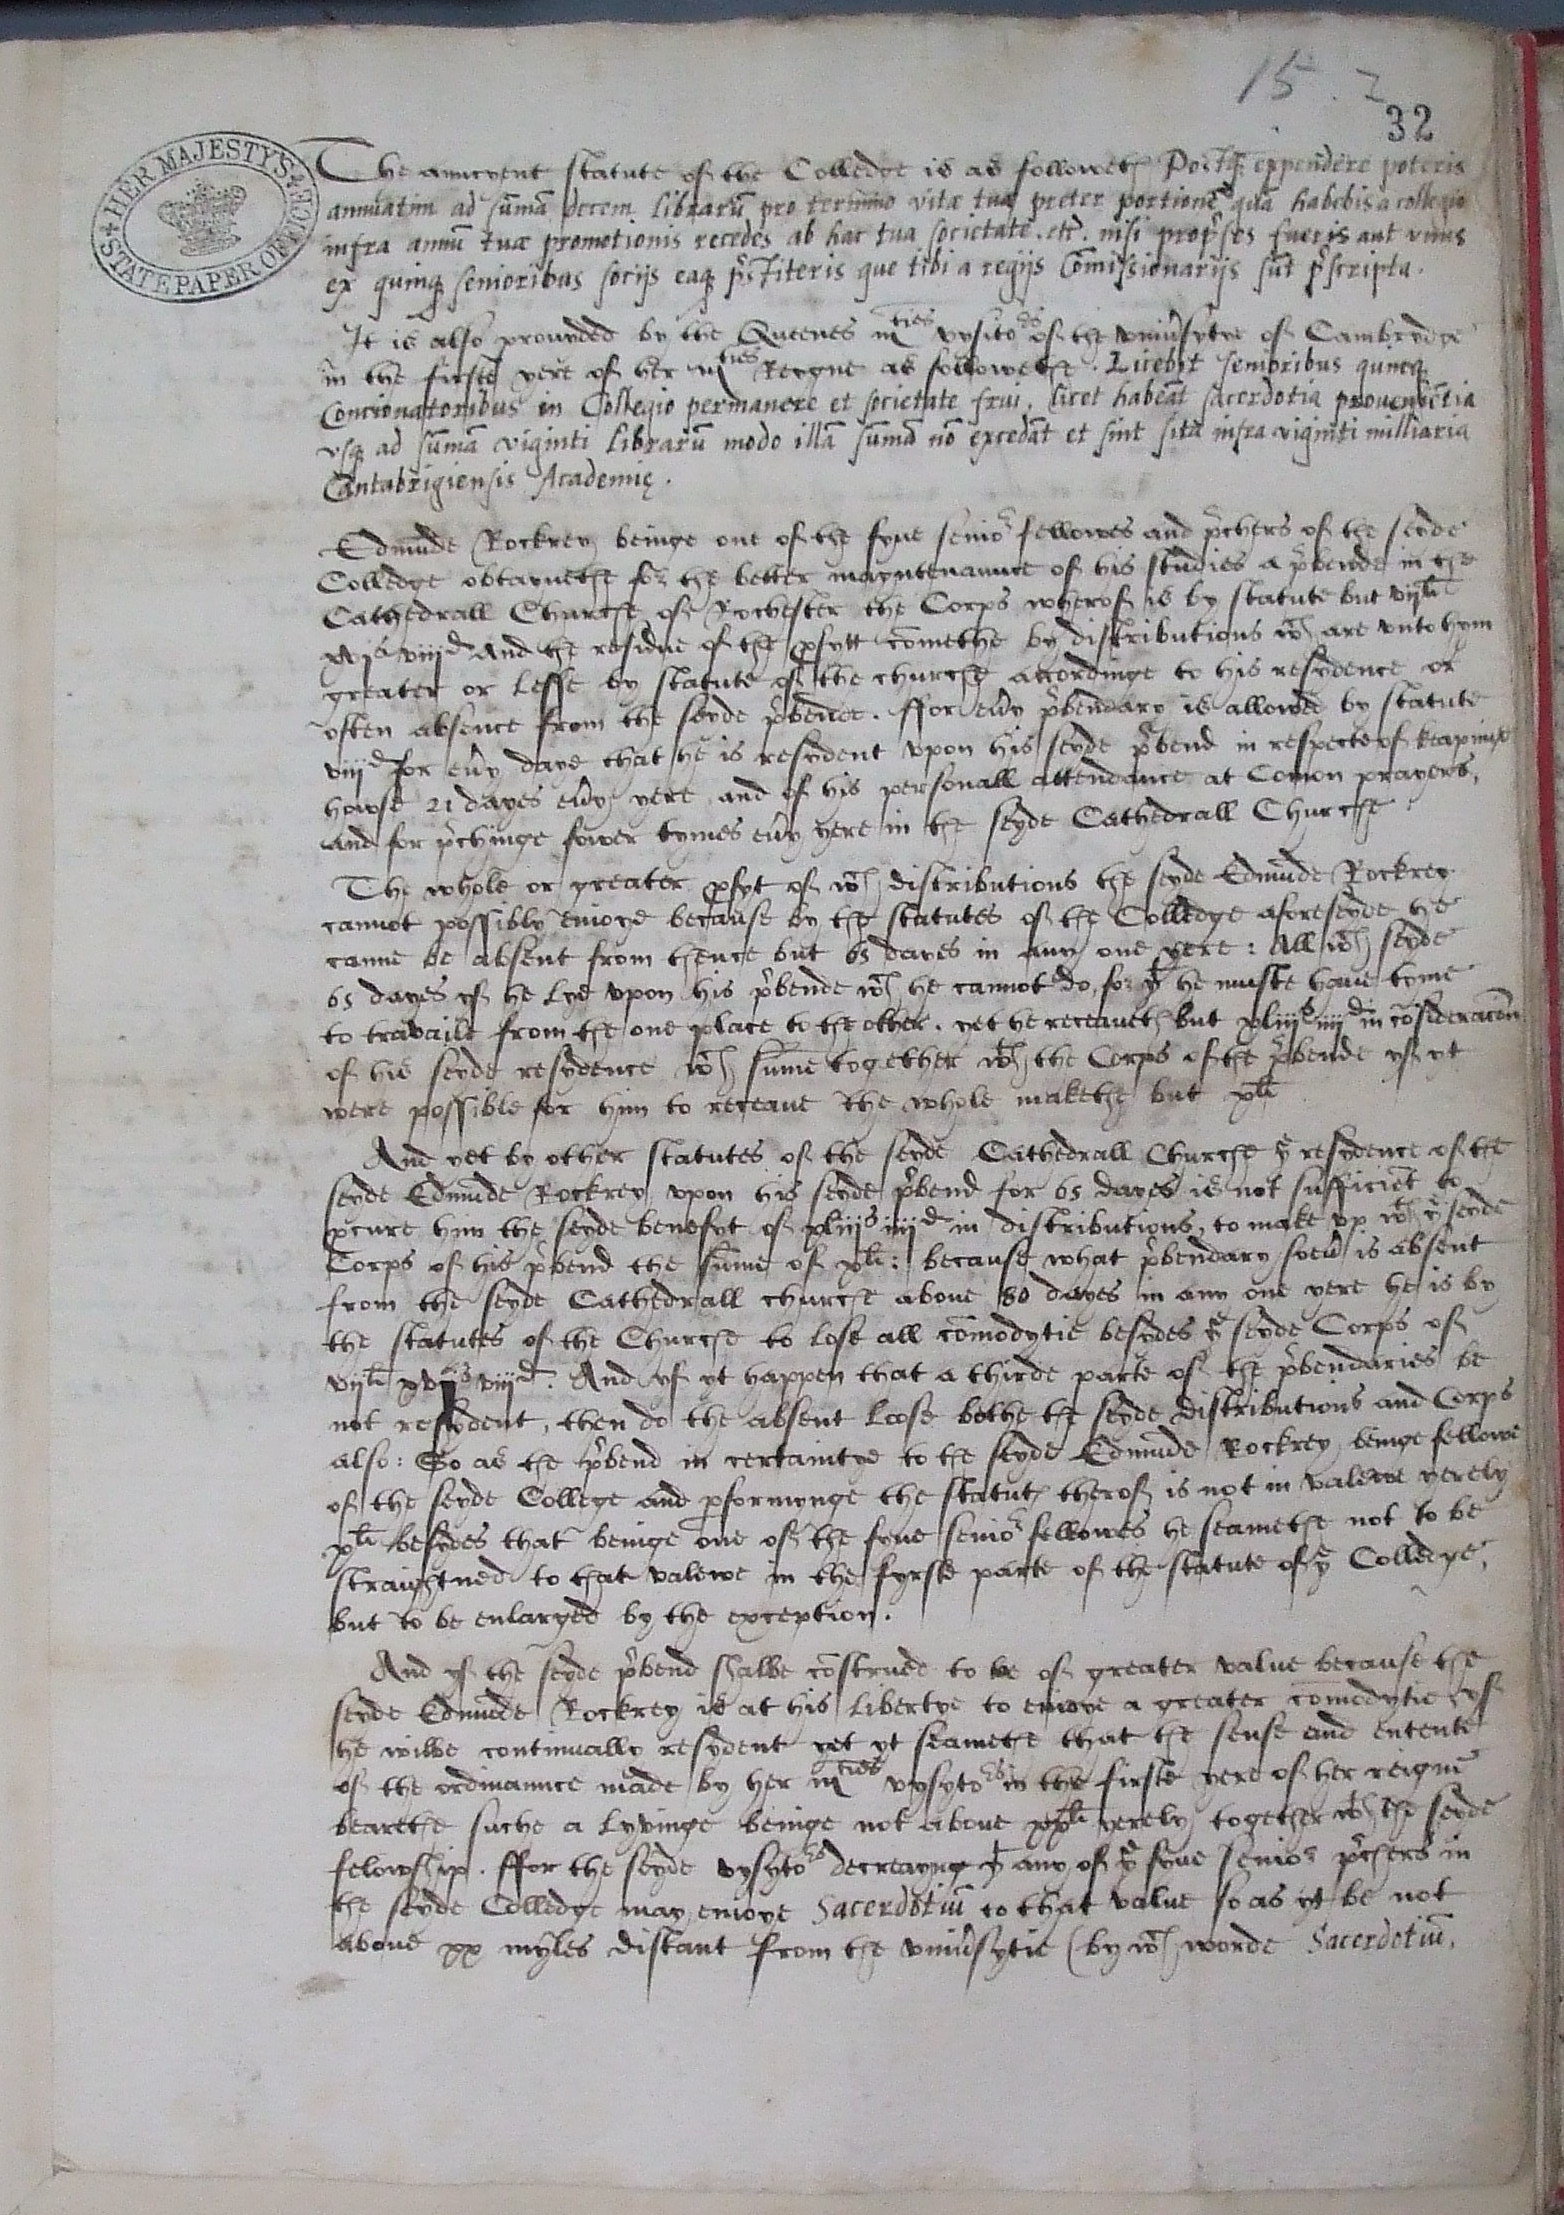 15. 2
32
HER MAJESTY'S STATE PAPER OFFICE
The auncyent statute of the Colledge is as followeth Postq̃ expendere poteris
annuatim ad sum̃ã decem librarũ pro termino vitæ tuæ preter portionẽ quã habebis a collegio
infra annũ tuæ promotionis recedes ab hac tua societate. etc. nisi prop̃ses fueris aut vnus
ex quinq̃ senioribus socijs eaq̃ p̃stiteris que tibi a regijs Cõmissionarijs sũt p̃scripta.
It is also prouyded by the Queenes mties vysitors of the vniu̔sytye of Cambrydge
in the firste yere of her mties Reygne as followethe. Licebit senioribus quinq̃
Concionatoribus in Collegio permanere et societate frui, licet habeãt sacerdotia proueniẽtia
vsq̃ ad sum̃ã viginti librarũ modo illã sum̃ã nõ excedãt et sint sita infra viginti milliaria
Cantabrigiensis Academię.
Edmũde Rockrey beinge one of the fyue senior fellowes and p̃chers of the seyde
Colledge obtaynethe for the better mayntenaunce of his studies a p̃bende in the
Cathedrall Churche of Rochester the Corps wherof is by statute but vijli
xvjs viijd And the residue of the p̱fytt cõmethe by distributions wch are vnto hym
greater or lesse by statute of the churche accordinge to his resydence or
often absence from the seyde p̃bende. ffor eũy p̃bendary is allowed by statute
viijd for eũy daye that he is resydent vpon his seyde p̃bend in respecte of keapinge
howse 21 dayes eũy yere and of his personall attendance at Com̃on prayers,
and for p̃chinge fower tymes eũy yere in the seyde Cathedrall Churche.
The whole or greater p̱fyt of wch distributions the seyde Edmũde Rockrey
cannot possibly enioye because by the statutes of the Colledge aforeseyde he
canne be absent from thence but 65 dayes in any one yere: All wch seyde
65 dayes yf he lye vpon his p̃bende wch he cannot do, for yt he muste haue tyme
to travaile from the one place to the other. yet he receaueth but xliijs iiijd in cõsideracõn
of his seyde resydence wch sum̃e together wth the Corps of the p̃bende yf yt
were possible for him to receaue the whole makethe but xli
And yet by other statutes of the seyde Cathedrall Churche ye resydence of the
seyde Edmũde Rockrey vpon his seyde p̃bend for 65 dayes is not sufficiẽt to
p̱cure him the seyde benefyt of xliijs iiijd in distributions, to make vp wth ye seyde
Corps of his p̃bend the sum̃e of xli: because what p̃bendary soeũ is absent
from the seyde Cathedrall churche aboue 80 dayes in any one yere he is by
the statutes of the Churche to lose all cõmodytie besydes ye seyde Corps of
vijli xvjs viijd. And yf yt happen that a thirde parte of the p̃bendaries be
not resydent, then do the absent loose bothe the seyde distributions and Corps
also: So as the p̃bend in certaintye to the seyde Edmũde Rockrey beinge fellowe
of the seyde College and p̱formynge the statuts therof is not in valewe yerely
xli besydes that beinge one of the fyue senior fellowes he seamethe not to be
straightned to that valewe in the fyrste parte of the statute of ye Colledge,
but to be enlarged by the exception.
And yf the seyde p̃bend shalbe cõstrued to be of greater value because the
seyde Edmũde Rockrey is at his libertye to enioye a greater cõmodytie yf
he wilbe continually resydent yet yt seamethe that the sense and entente
of the ordinaunce made by her mties vysytors in the firste yere of her reigne
bearethe suche a lyvinge beinge not aboue xxli yerely together wth the seyde
felowship. ffor the seyde vysytors decreayng yt any of ye fyue senior p̃chers in
the seyde Colledge may enioye Sacerdotiũ to that value so as yt be not
aboue xx myles distant from the vniu̔sytie (by wch worde Sacerdotiũ,